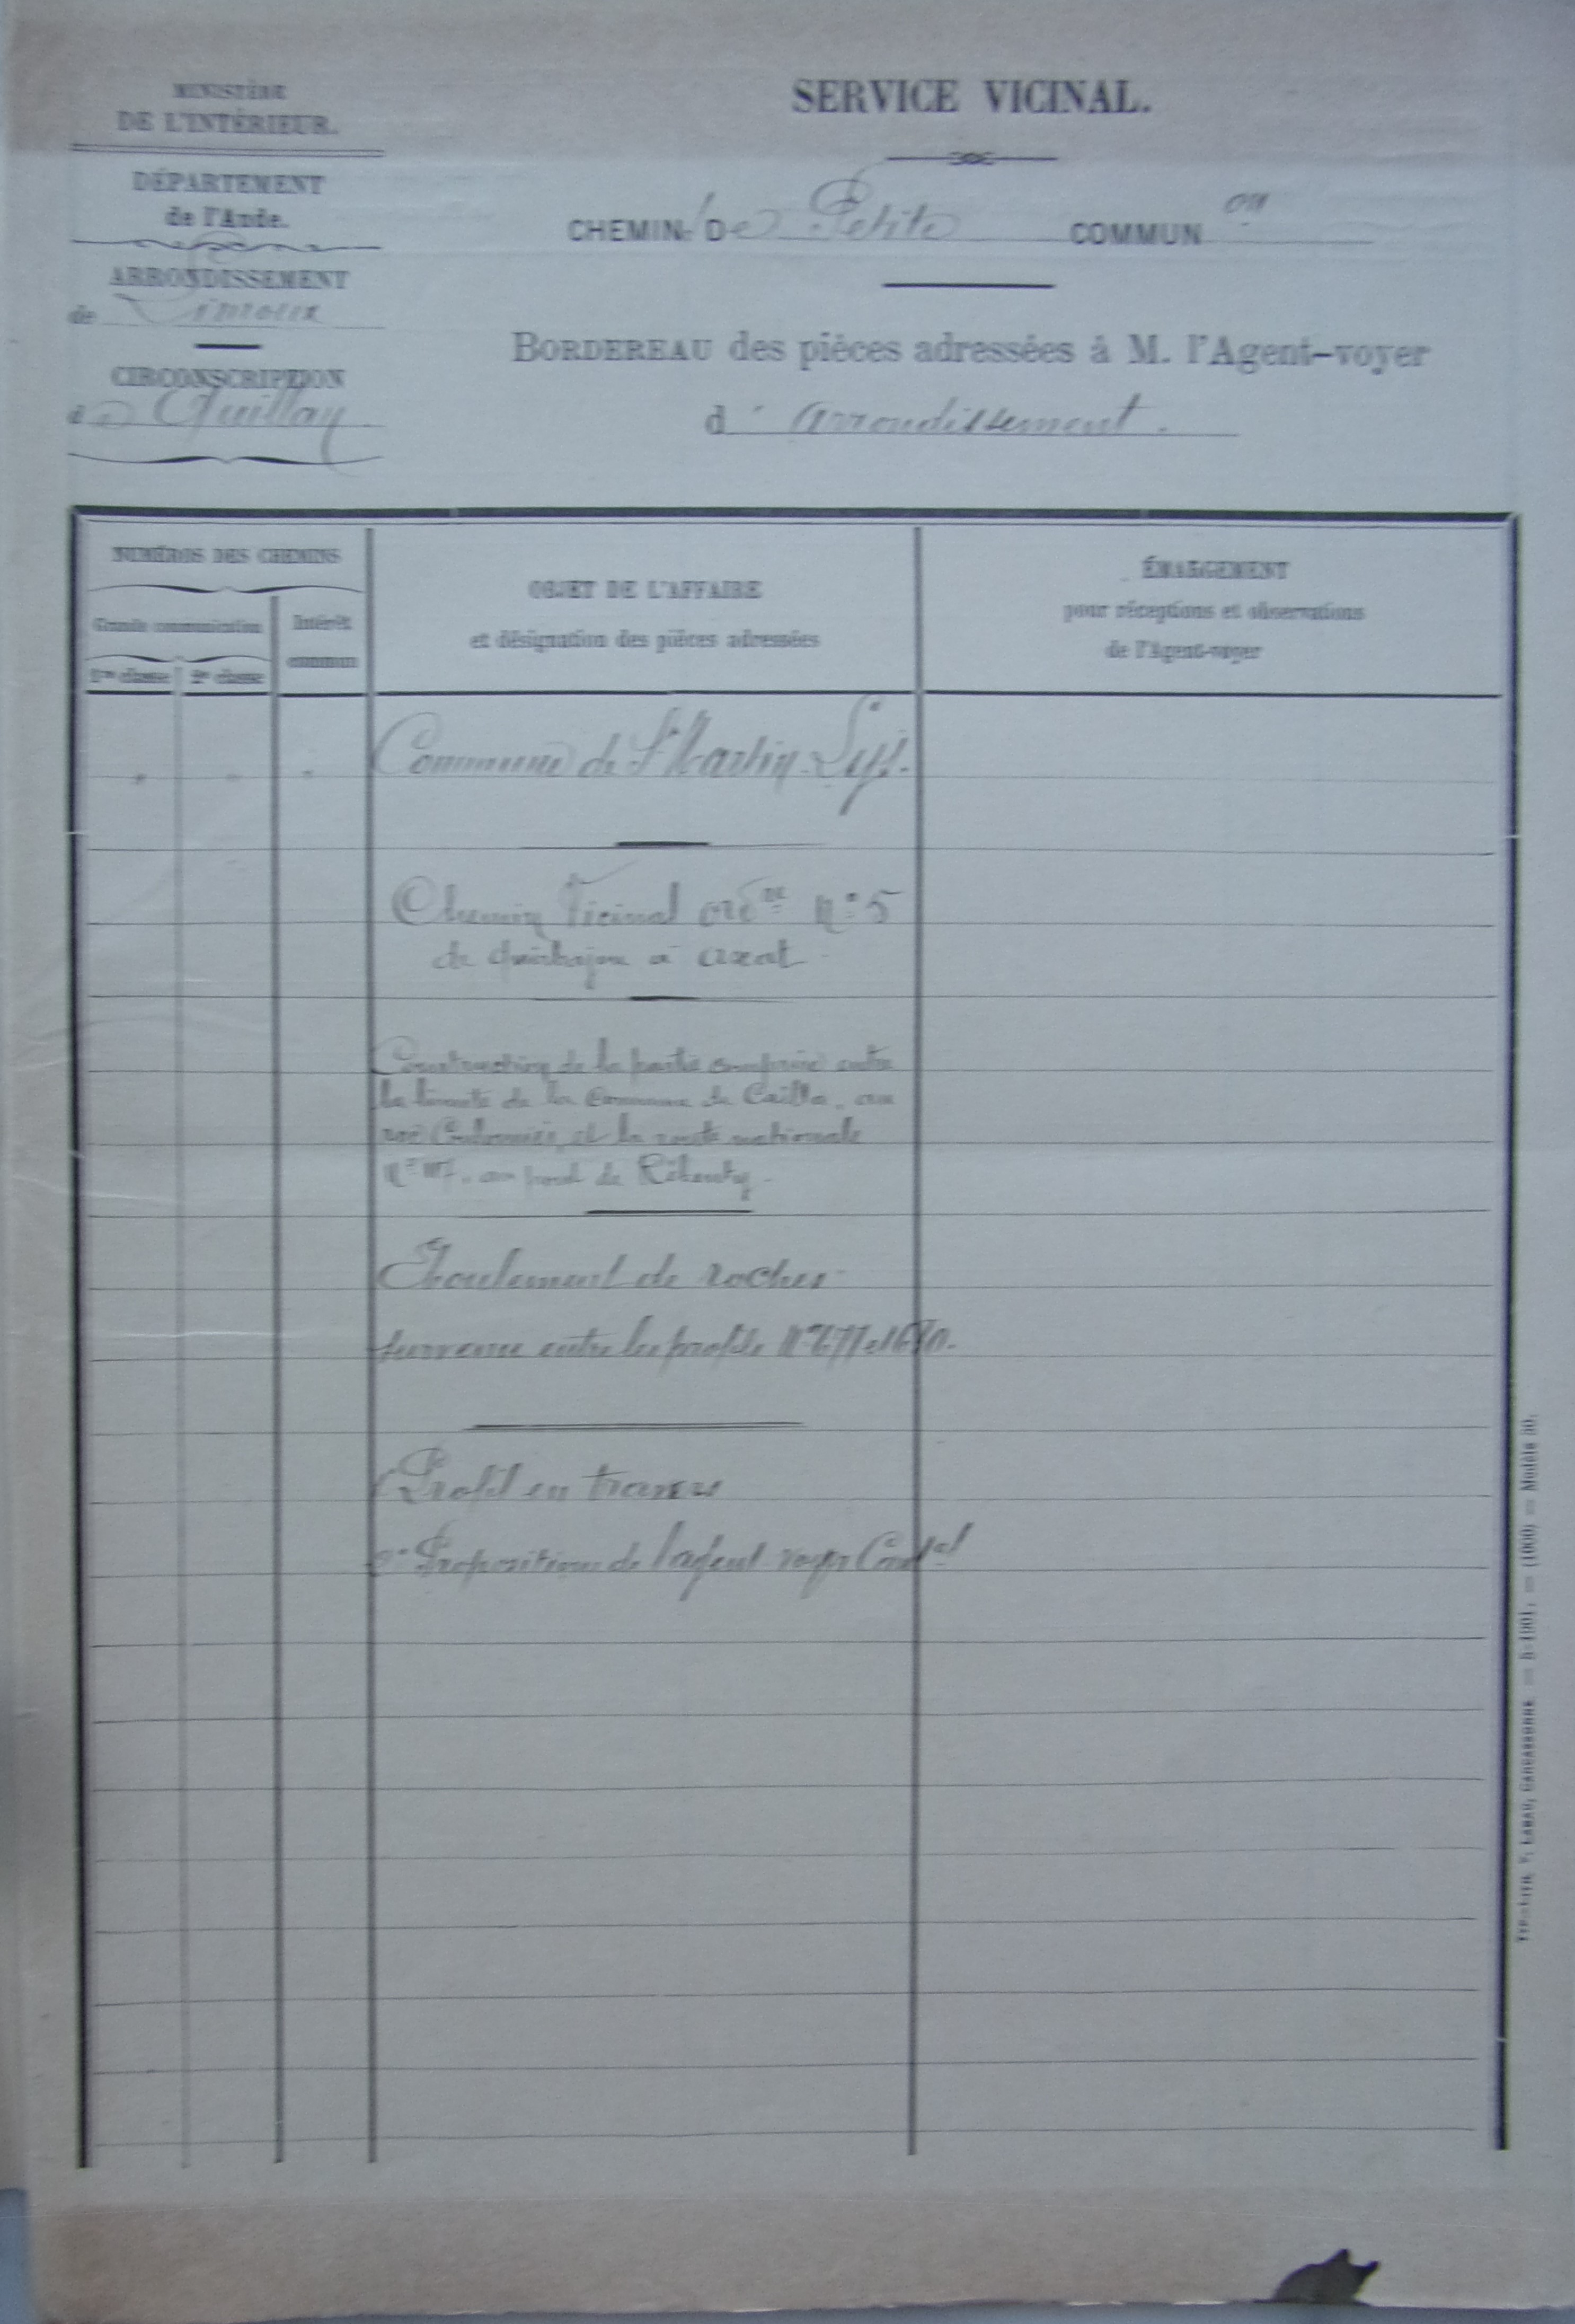 MINISTÈRE
DE L'INTÉRIEUR.
DÉPARTEMENT
de l'Aude.
ARRONDISSEMENT
de Limoux
CIRCONSCRIPTION
de Quillan
SERVICE VICINAL.
CHEMIN De Petite COMMUN on
BORDEREAU des pièces adressées à M. l'Agent-voyer
d' arrondissement.
NUMÉROS DES CHEMINS
Grande communication
1re classe 2e classe
Intérêt
commun
OBJET DE L'AFFAIRE
et désignation des pièces adressées
ÉMARGEMENT
pour réceptions et observations
de l'Agent-voyer
" " "
Commune de St Martin-Lys.
Chemin Vicinal ordre N° 5
de Quirbajou à Axat
Construction de la partie comprise entre
la limite de la Commune de Cailla, au
et la route nationale
N° 117, au pont de Rébenty
Eboulement de roches
survenu entre les profils N° 677 et 680.
Profil en travers
2° Propositions de l'agent voyer Cantal
TYP.-LITH. V. LABAU, CARCASSONNE — 5-1901. — (1000) — Modèle 30.